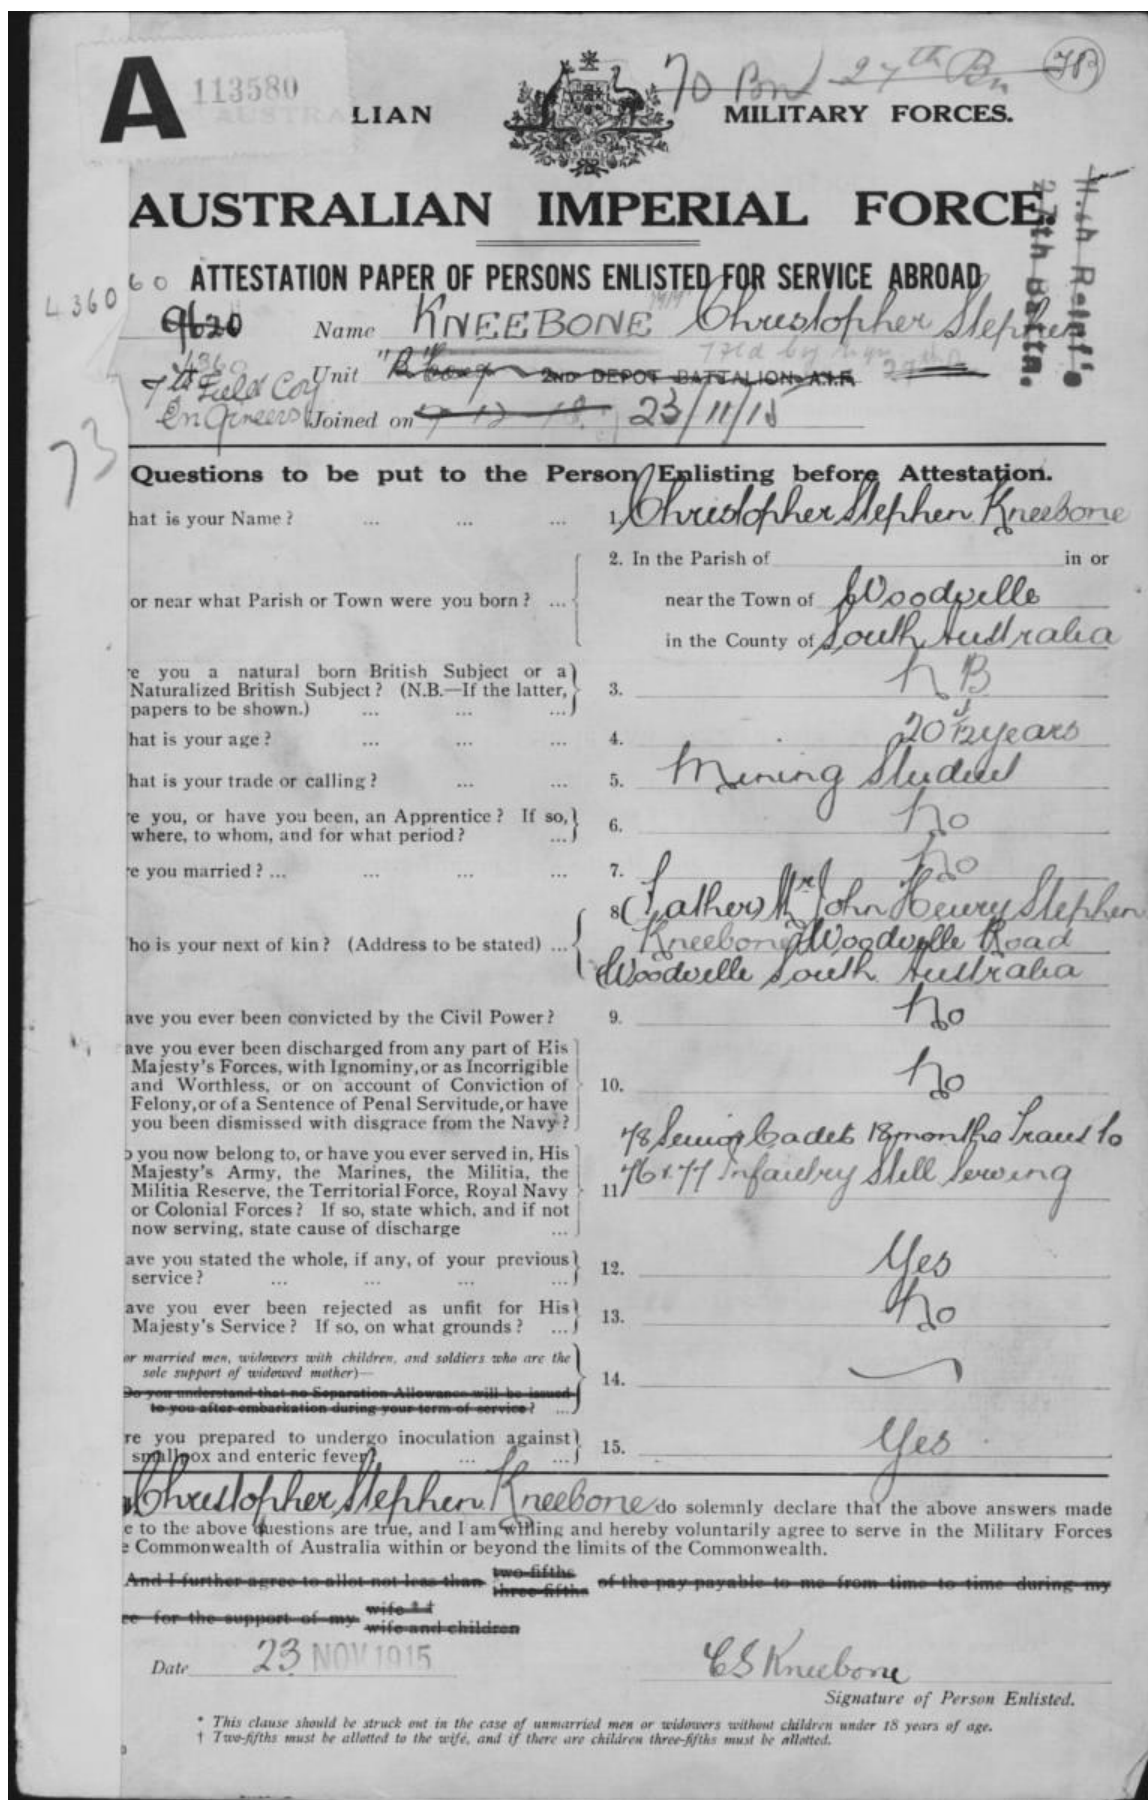 A 113580
AUSTRALIAN MILITARY FORCES.
70 Bn 27th Bn
AUSTRALIAN IMPERIAL FORCE.
11th Reinf's
27th Battn.
ATTESTATION PAPER OF PERSONS ENLISTED FOR SERVICE ABROAD
4360 60
9620 Name KNEEBONE Christopher Stephen
4360
7th Field Coy Unit "B" Coy 2ND DEPOT BATTALION A.I.F. 27th
Engineers Joined on 23/11/15
73
Questions to be put to the Person Enlisting before Attestation.
hat is your Name? ... ... ... 1. Christopher Stephen Kneebone
2. In the Parish of in or
or near what Parish or Town were you born? ... near the Town of Woodville
in the County of South Australia
re you a natural born British Subject or a
Naturalized British Subject? (N.B.—If the latter, 3. N B
papers to be shown.) ... ... ...
hat is your age? ... ... ... 4. 20 1/12 years
hat is your trade or calling? ... ... 5. Mining Student
re you, or have you been, an Apprentice? If so, 6. No
where, to whom, and for what period? ...
re you married? ... ... ... ... 7. No
8. (Father) Mr John Henry Stephen
ho is your next of kin? (Address to be stated) ... Kneebone Woodville Road
Woodville South Australia
ave you ever been convicted by the Civil Power? 9. No
ave you ever been discharged from any part of His
Majesty's Forces, with Ignominy, or as Incorrigible
and Worthless, or on account of Conviction of 10. No
Felony, or of a Sentence of Penal Servitude, or have
you been dismissed with disgrace from the Navy?
78 Senior Cadets 18 months Trans to
o you now belong to, or have you ever served in, His
Majesty's Army, the Marines, the Militia, the 76 & 77 Infantry Still Serving
Militia Reserve, the Territorial Force, Royal Navy 11.
or Colonial Forces? If so, state which, and if not
now serving, state cause of discharge ...
ave you stated the whole, if any, of your previous 12. Yes
service? ... ... ... ...
ave you ever been rejected as unfit for His 13. No
Majesty's Service? If so, on what grounds? ...
or married men, widowers with children, and soldiers who are the
sole support of widowed mother)— 14.
Do you understand that no Separation Allowance will be issued
to you after embarkation during your term of service? ...
re you prepared to undergo inoculation against 15. Yes
smallpox and enteric fever? ... ...
Christopher Stephen Kneebone do solemnly declare that the above answers made
e to the above questions are true, and I am willing and hereby voluntarily agree to serve in the Military Forces
e Commonwealth of Australia within or beyond the limits of the Commonwealth.
And I further agree to allot not less than two-fifths three-fifths of the pay payable to me from time to time during my
ce for the support of my wife * † wife and children
Date 23 NOV 1915 C S Kneebone
Signature of Person Enlisted.
* This clause should be struck out in the case of unmarried men or widowers without children under 18 years of age.
† Two-fifths must be allotted to the wife, and if there are children three-fifths must be allotted.